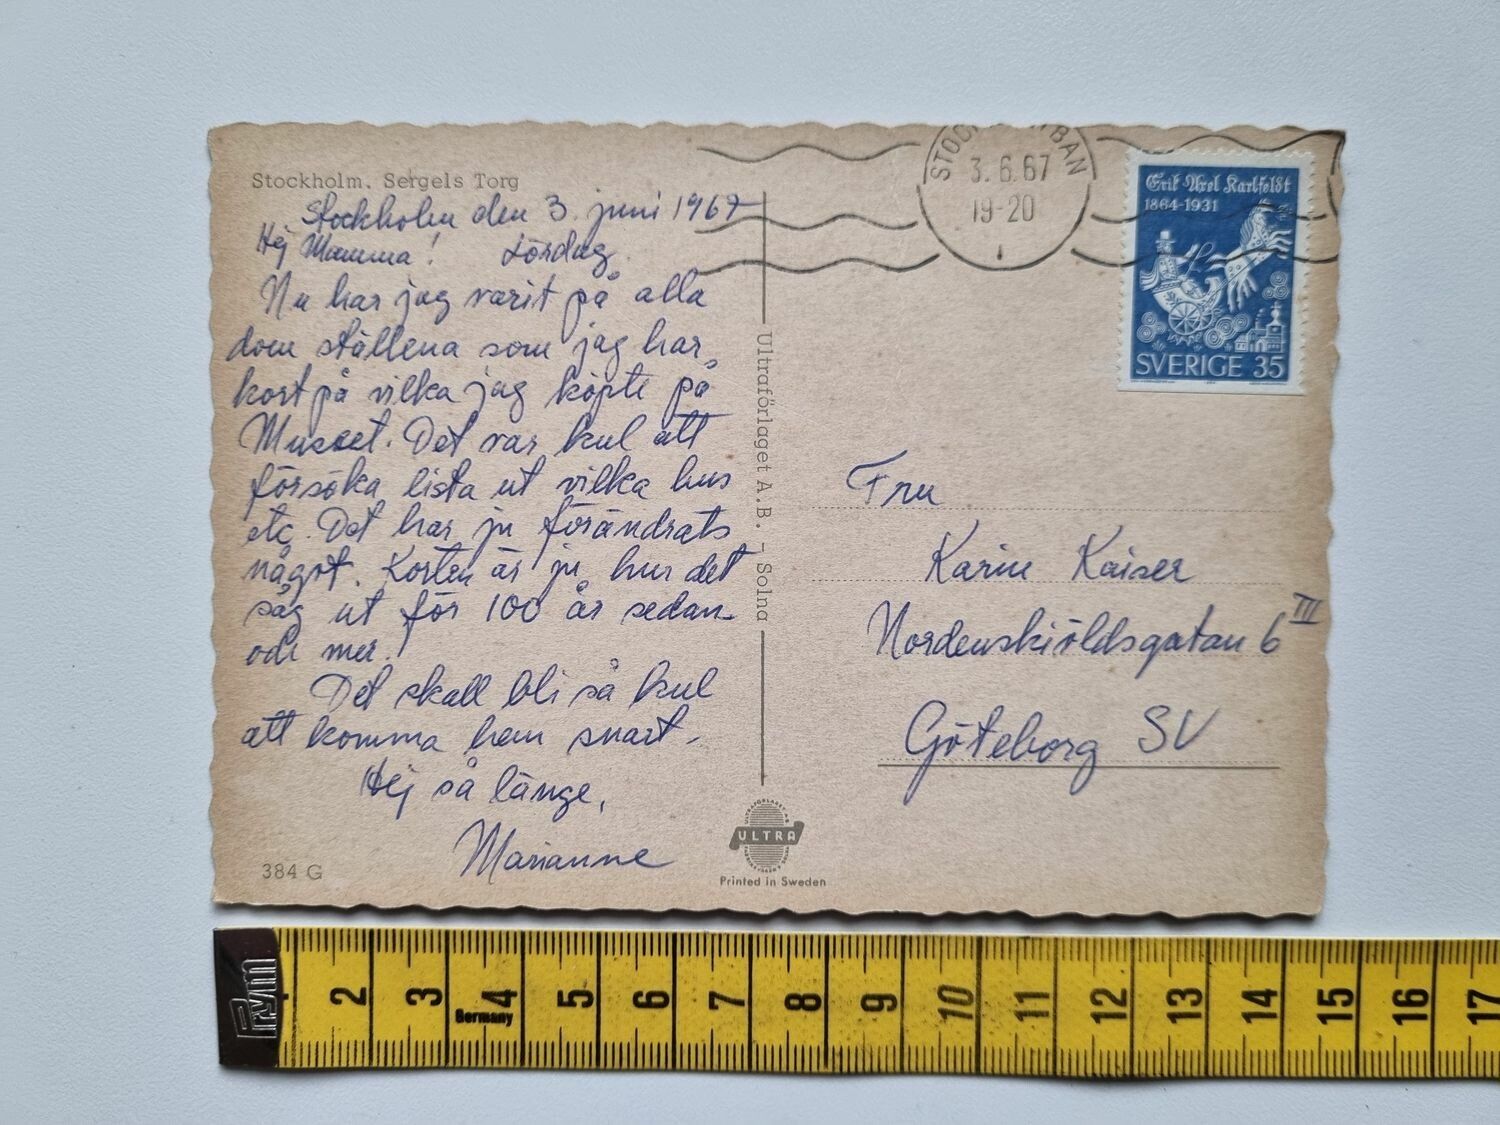 Stockholm. Sergels Torg
Stockholm den 3. juni 1967
Hej Mamma! Lördag.
Nu har jag varit på alla
dom ställena som jag har
kort på vilka jag köpte på
Museet. Det var kul att
försöka lista ut vilka hus
etc. Det har ju förändrats
något. Korten är ju hur det
såg ut för 100 år sedan
och mer.
Det skall bli så kul
att komma hem snart.
Hej så länge,
Marianne
384 G
Ultraförlaget A.B. - Solna
ULTRA
Printed in Sweden
3.6.67
19-20
Erik Axel Karlfeldt
1864-1931
SVERIGE 35
Fru
Karin Kaiser
Nordenskiöldsgatan 6 III
Göteborg SV
2 3 4 5 6 7 8 9 10 11 12 13 14 15 16 17
Germany